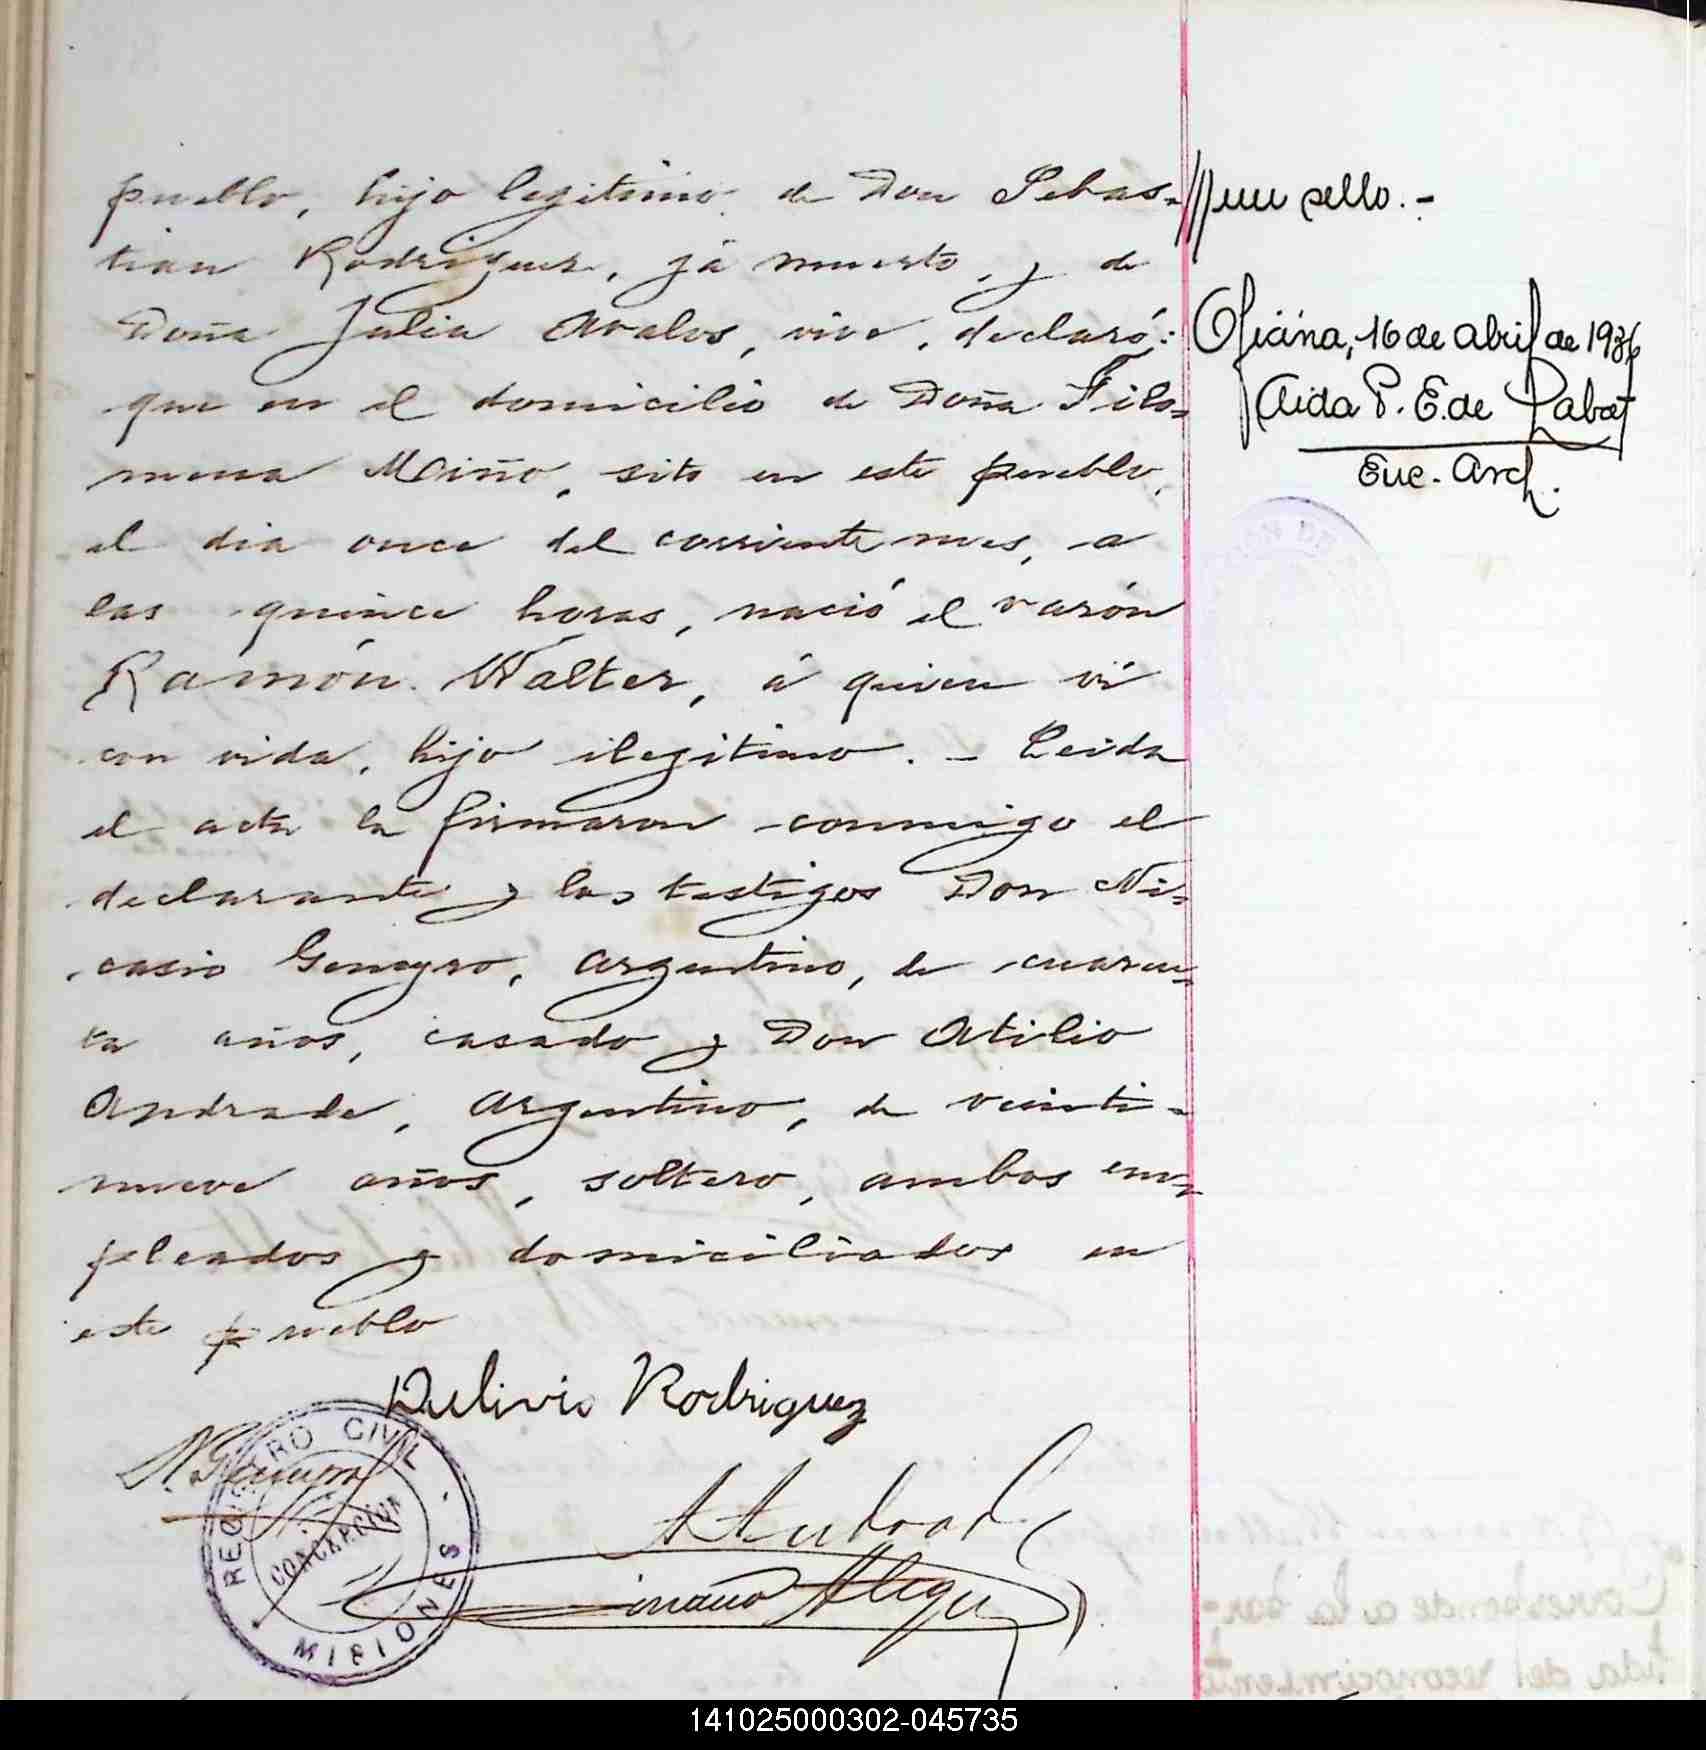 pueblo, hijo legitimo de Don Sebas-
tian Rodriguez, yá muerto, y de
Doña Julia Avalos, vive, declaró:
que en el domicilio de Doña Filo-
mena Miño, sito en este pueblo,
el dia once del corriente mes, a
las quince horas, nació el varón
Ramón Walter, á quien ví
con vida, hijo ilegitimo. - Leida
el acta la firmaron conmigo el
declarante y los testigos Don Ni-
casio Geneyro, argentino, de cuaren-
ta años, casado y Don Atilio
Andrade, argentino, de veinti-
nueve años, soltero, ambos em-
pleados y domiciliados en
este pueblo
Dulivio Rodriguez
REGISTRO CIVIL
CONCEPCIÓN
MISIONES
A Andrade
un sello.-
Oficina, 16 de abril de 1936
Aida P. E. de Labat
Enc. Arch.
Corresponde a la
tida del reconocimiento
141025000302-045735